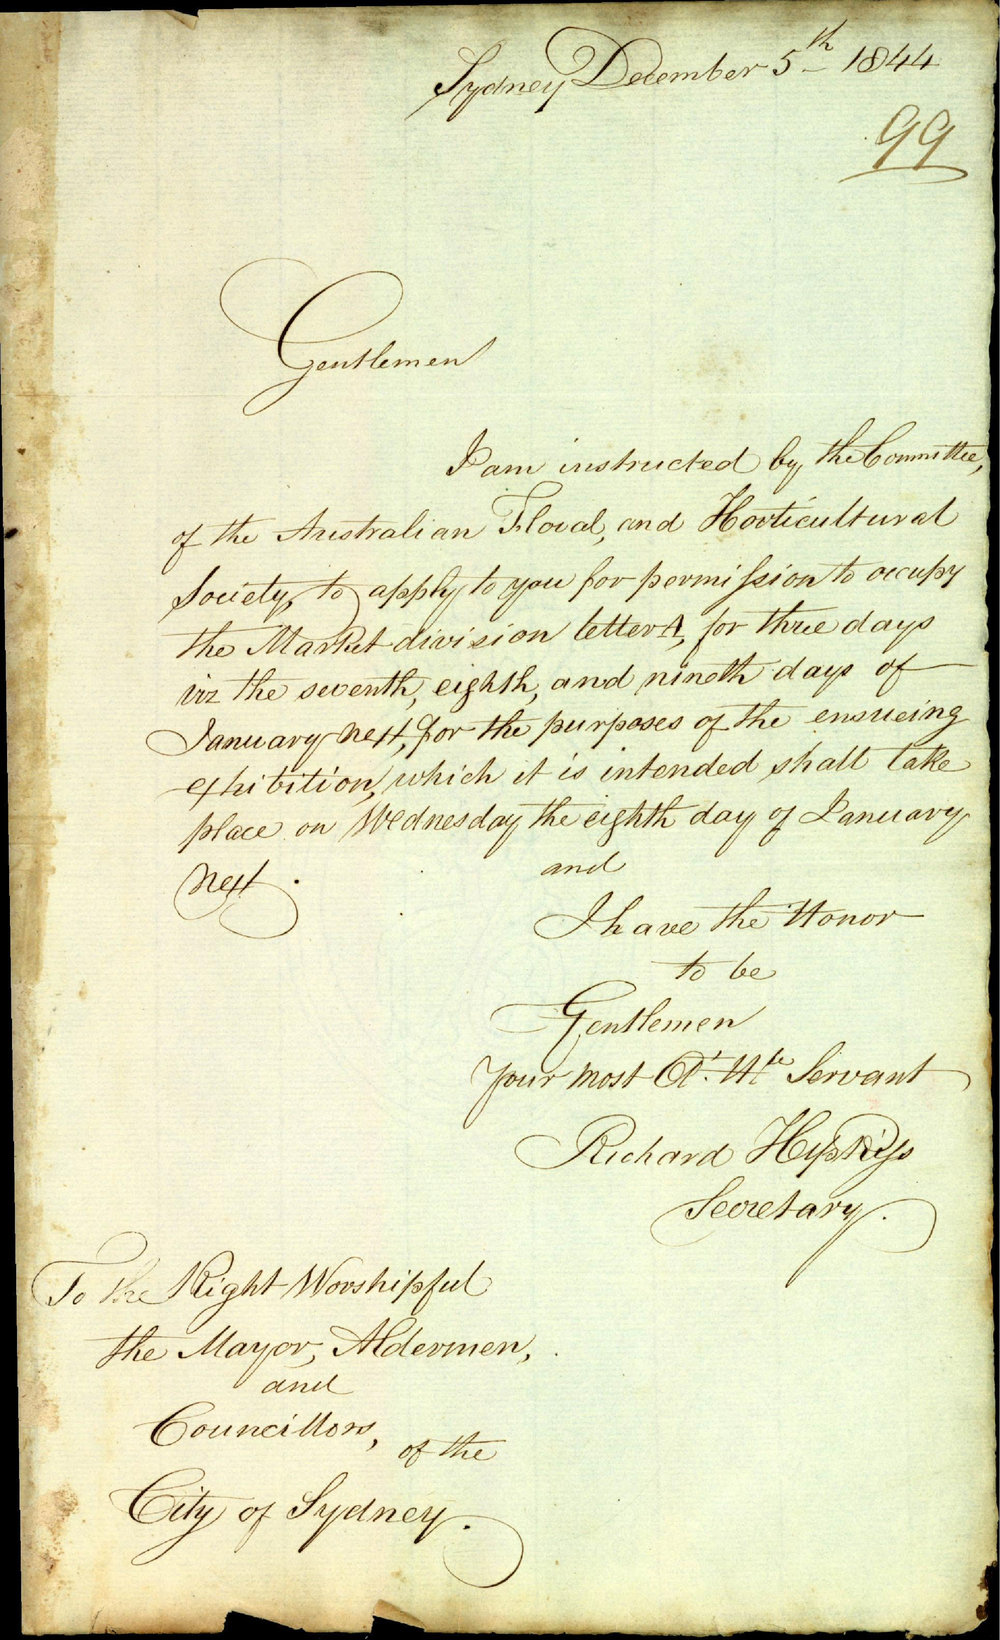 Sydney December 5th 1844
99
Gentlemen
I am instructed by the Committee,
of the Australian Floral, and Horticultural
Society, to apply to you for permission to occupy
the Market division letter A, for three days
viz the seventh, eighth, and nineth days of
January next, for the purposes of the ensueing
exhibition, which it is intended shall take
place on Wednesday the eighth day of January
next.
and
I have the Honor
to be
Gentlemen
Your most Ot. Hle Servant
Richard Hipkiss
Secretary.
To the Right Worshipful
the Mayor, Aldermen,
and
Councillors,
of the
City of Sydney.